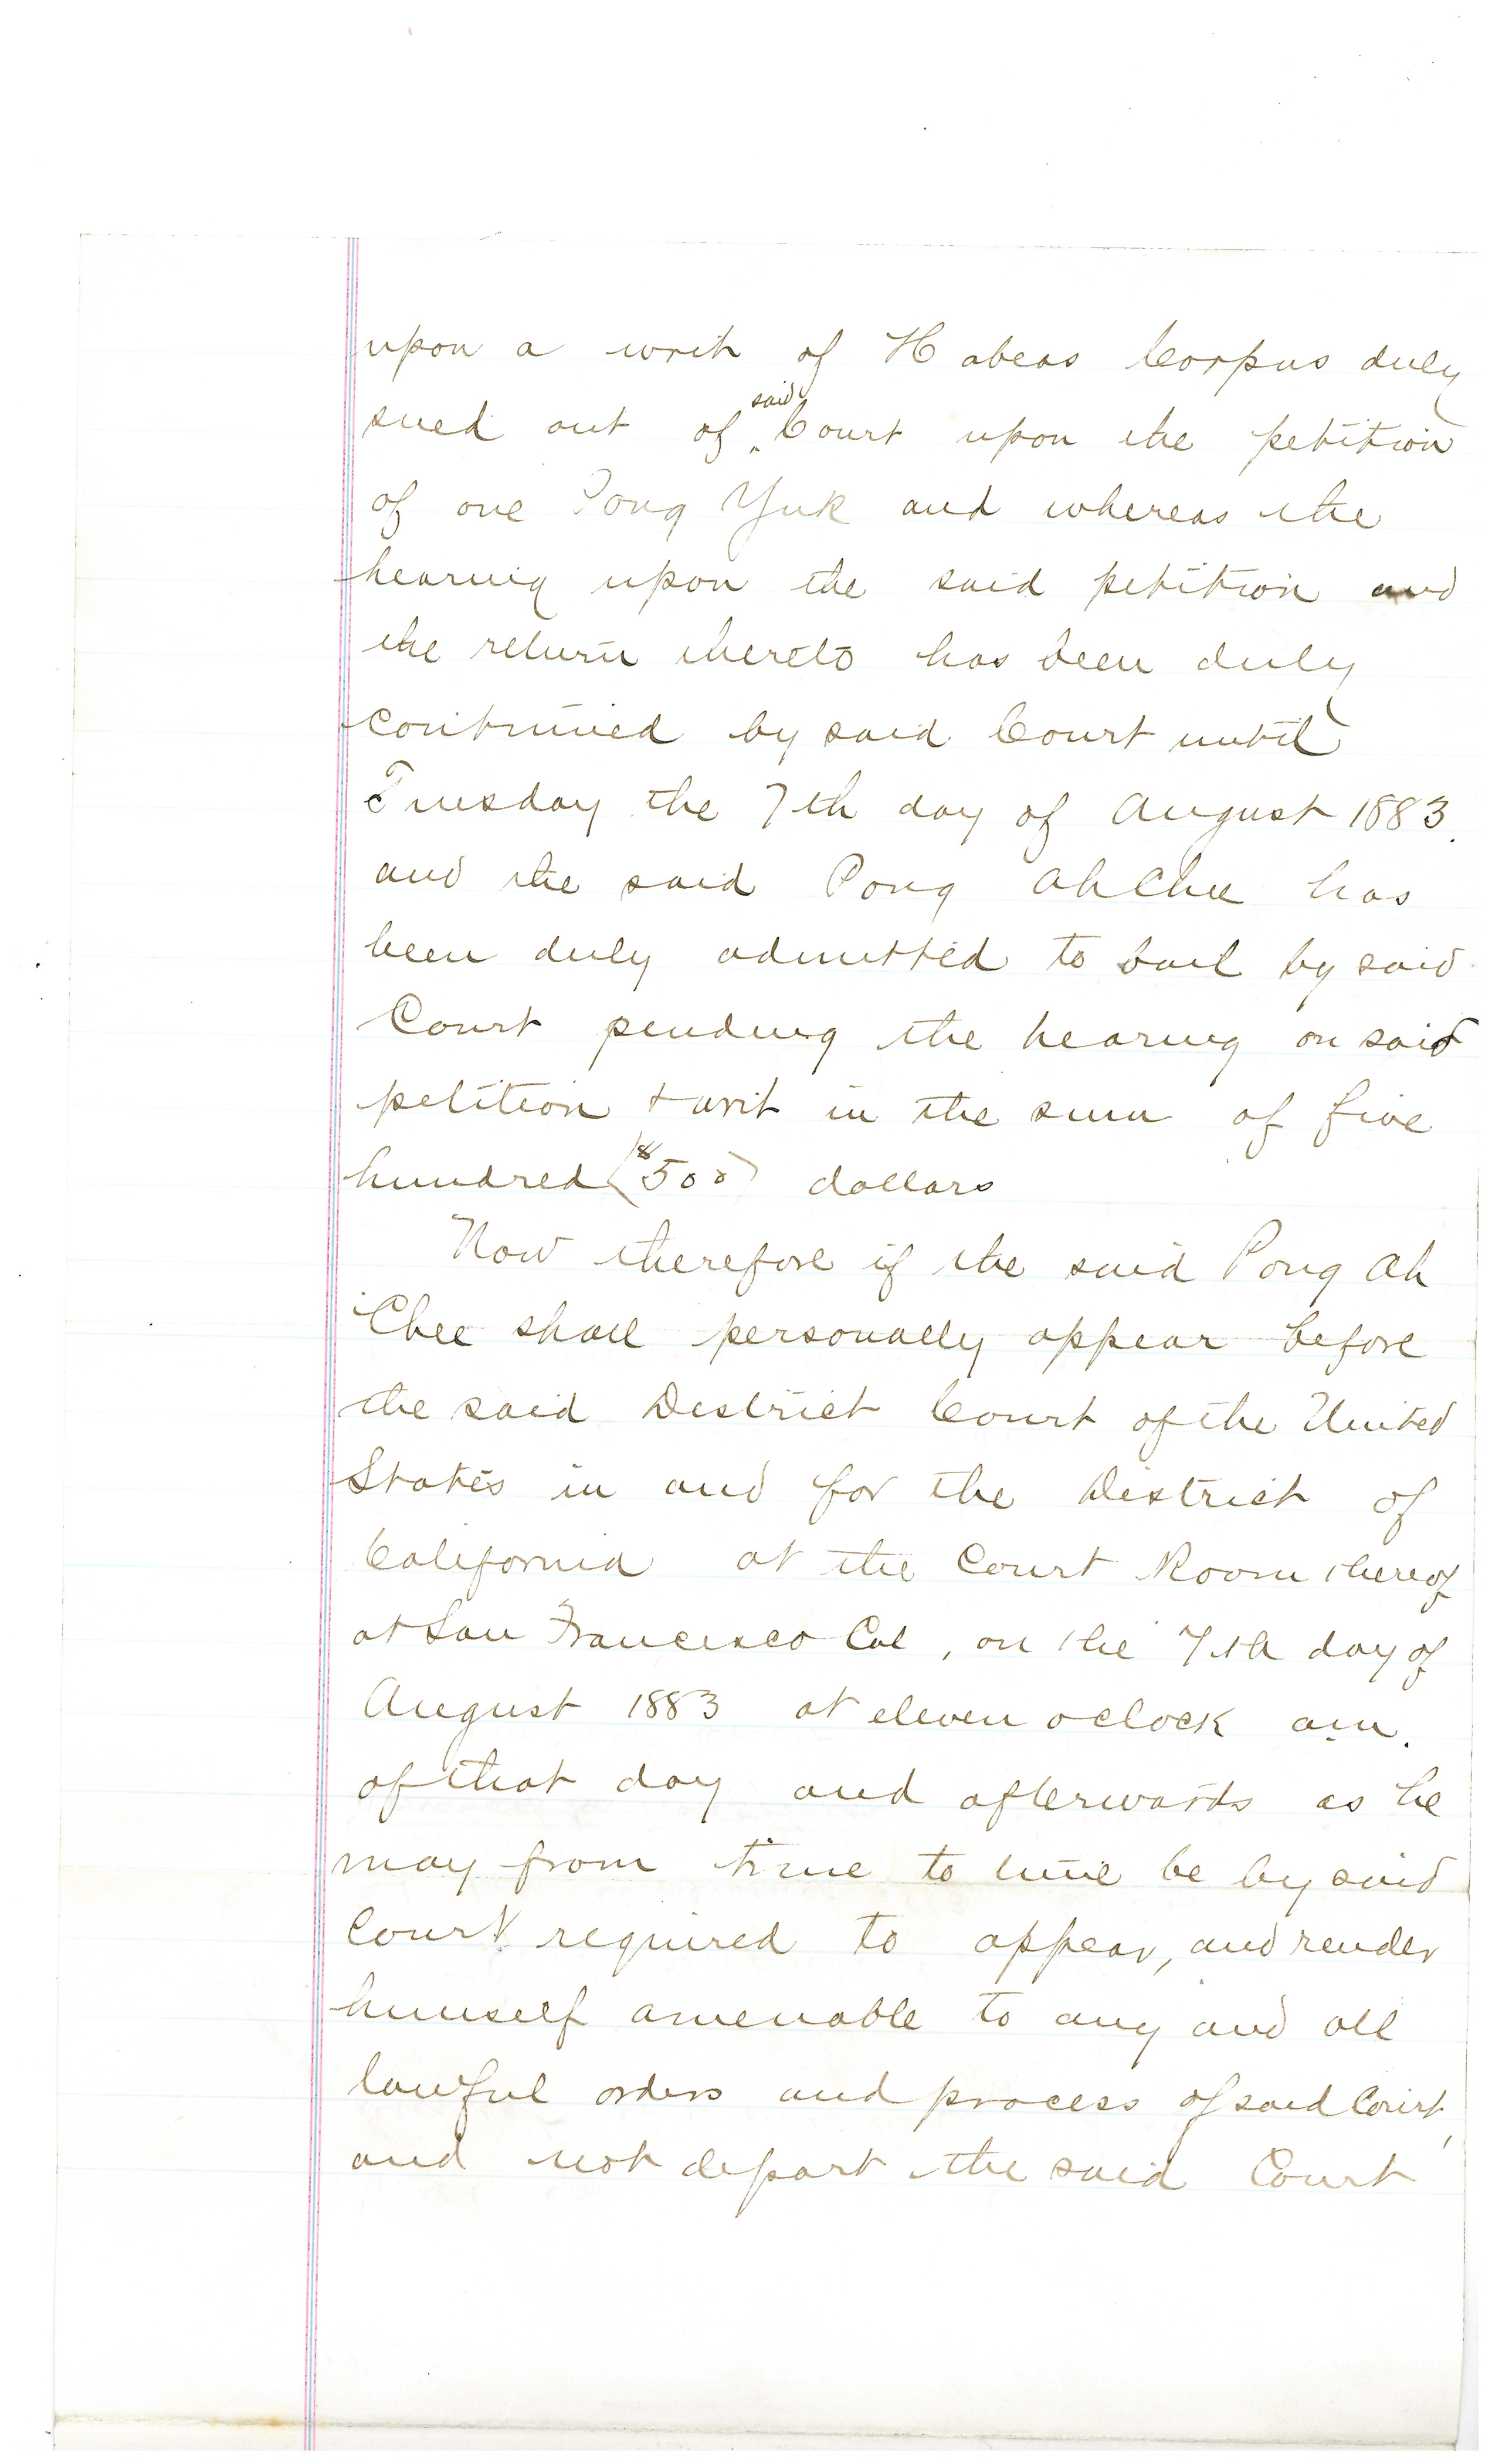 upon a writ of Habeas Corpus duly
sued out of said Court upon the petition
of one Pong Yuk and whereas the
hearing upon the said petition and
the return thereto has been duly
continued by said Court until
Tuesday the 7th day of August 1883.
and the said Pong Ah Chee has
been duly admitted to bail by said
Court pending the hearing on said
petition + writ in the sum of five
hundred ($500) dollars
Now therefore if the said Pong Ah
Chee shall personally appear before
the said District Court of the United
States in and for the District of
California at the Court Room thereof
at San Francisco Cal, on the 7th day of
August 1883 at eleven oclock a.m.
of that day and afterwards as he
may from time to time be by said
Court required to appear, and render
himself amenable to any and all
lawful orders and process of said Court,
and not depart the said Court